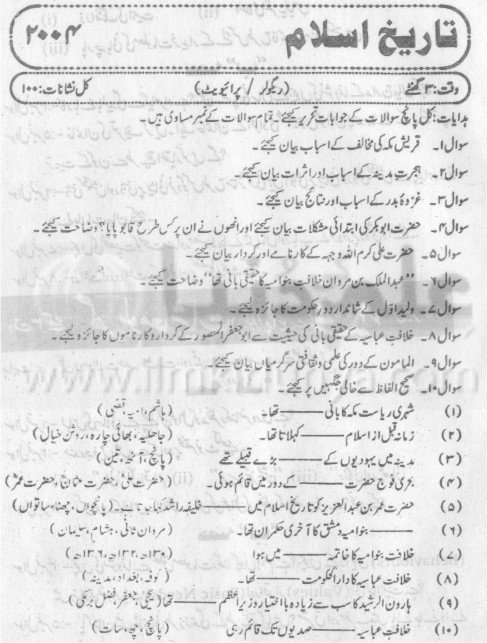 تاریخ اسلام
۲۰۰۴
وقت: ۳ گھنٹے (ریگولر / پرائیویٹ) کل نشانات: ۱۰۰
ہدایات: کل پانچ سوالات کے جوابات تحریر کیجئے۔ تمام سوالات کے نمبر مساوی ہیں۔
سوال۱۔ قریش مکہ کی مخالفت کے اسباب بیان کیجئے۔
سوال۲۔ ہجرت مدینہ کے اسباب اور اثرات بیان کیجئے۔
سوال۳۔ غزوہ بدر کے اسباب اور نتائج بیان کیجئے۔
سوال۴۔ حضرت ابوبکر کی ابتدائی مشکلات بیان کیجئے اور انھوں نے ان پر کس طرح قابو پایا؟ وضاحت کیجئے۔
سوال۵۔ حضرت علی کرم اللہ وجہہ کے کارنامے اور کردار بیان کیجئے۔
سوال۶۔ "عبدالملک بن مروان خلافت بنوامیہ کا حقیقی بانی تھا" وضاحت کیجئے۔
سوال۷۔ ولید اوّل کے شاندار دور حکومت کا جائزہ لیجئے۔
سوال۸۔ خلافت عباسیہ کے حقیقی بانی کی حیثیت سے ابوجعفر المنصور کے کردار و کارناموں کا جائزہ لیجئے۔
سوال۹۔ المامون کے دور کی علمی و ثقافتی سرگرمیاں بیان کیجئے۔
سوال۱۰۔ صحیح الفاظ سے خالی جگہیں پر کیجئے۔
(۱) شہری ریاست مکہ کا بانی ——— تھا۔ (ہاشم، امیہ، قصی)
(۲) زمانہ قبل از اسلام ——— کہلاتا تھا۔ (جاھلیہ، بھائی چارہ، روشن خیال)
(۳) مدینہ میں یہودیوں کے ——— بڑے قبیلے تھے (پانچ، آٹھ، تین)
(۴) بحری فوج حضرت ——— کے دور میں قائم ہوئی۔ (حضرت علی، حضرت عثمان، حضرت عمر)
(۵) حضرت عمر بن عبدالعزیز کو تاریخ اسلام میں ——— خلیفہ راشد کہا جاتا ہے۔ (پانچواں، چھٹا، ساتواں)
(۶) ——— بنوامیہ دمشق کا آخری حکمران تھا۔ (مروان ثانی، ہشام، سلیمان)
(۷) خلافت بنوامیہ کا خاتمہ ——— میں ہوا
(۸) خلافت عباسیہ کا دارالحکومت ——— تھا۔ (کوفہ، بغداد، مدینہ)
(۹) ہارون الرشید کا سب سے زیادہ بااختیار وزیر اعظم ——— تھا (یحییٰ، جعفر، فضل برمکی)
(۱۰) خلافت عباسیہ ——— صدیوں تک قائم رہی (پانچ، چھ، سات)